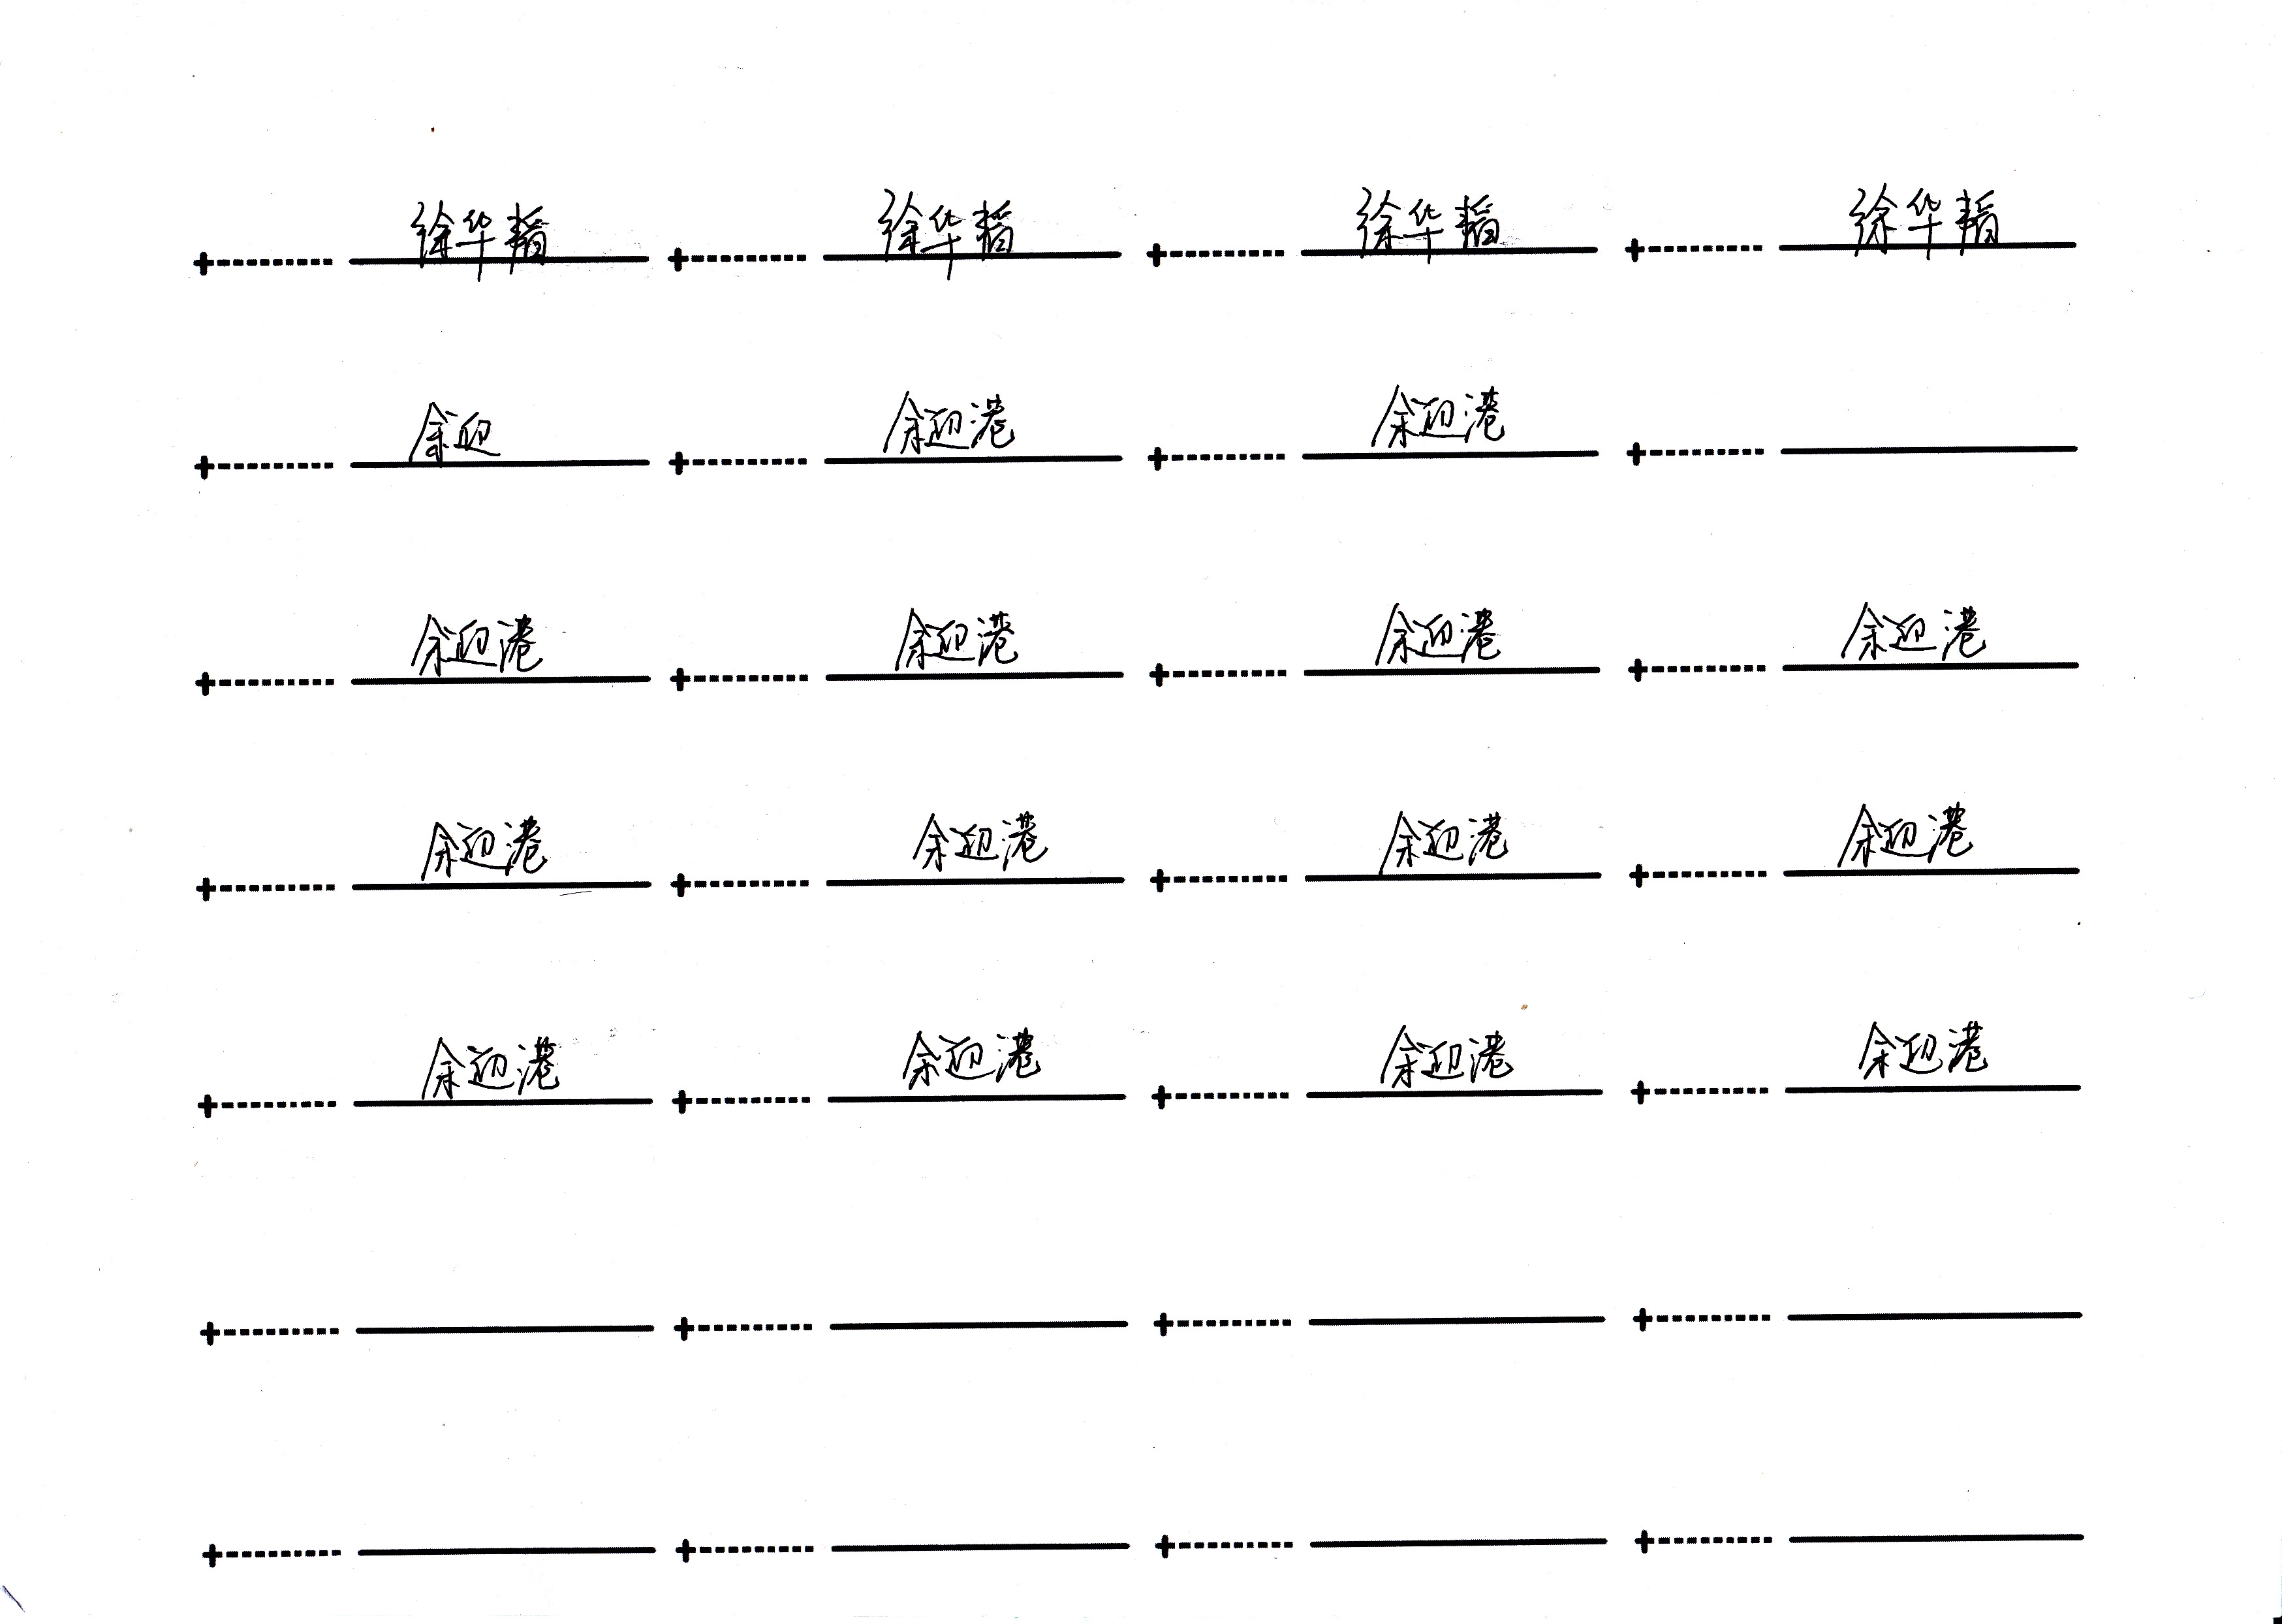 徐华韬 徐华韬 徐华韬 徐华韬
余迎 余迎港 余迎港
余迎港 余迎港 余迎港 余迎港
余迎港 余迎港 余迎港 余迎港
余迎港 余迎港 余迎港 余迎港